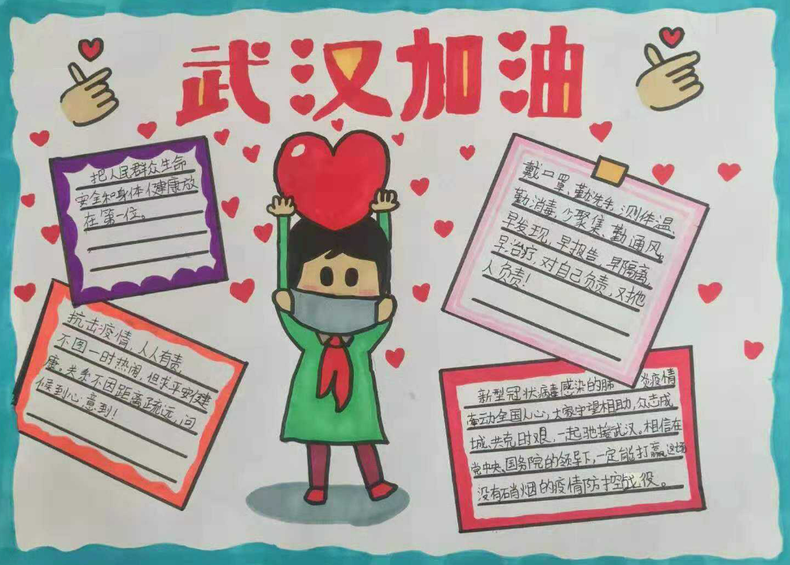 武汉加油
把人民群众生命
安全和身体健康放
在第一位。
戴口罩、勤洗手、测体温、
勤消毒、少聚集、勤通风、
早发现、早报告、早隔离、
早治疗,对自己负责,对他
人负责!
抗击疫情,人人有责,
不图一时热闹,但求平安健
康,关系不因距离疏远,问
候到心意到!
新型冠状病毒感染的肺炎疫情
牵动全国人心,大家守望相助、众志成
城、共克时艰,一起驰援武汉。相信在
党中央、国务院的领导下,一定能打赢这场
没有硝烟的疫情防控战役。